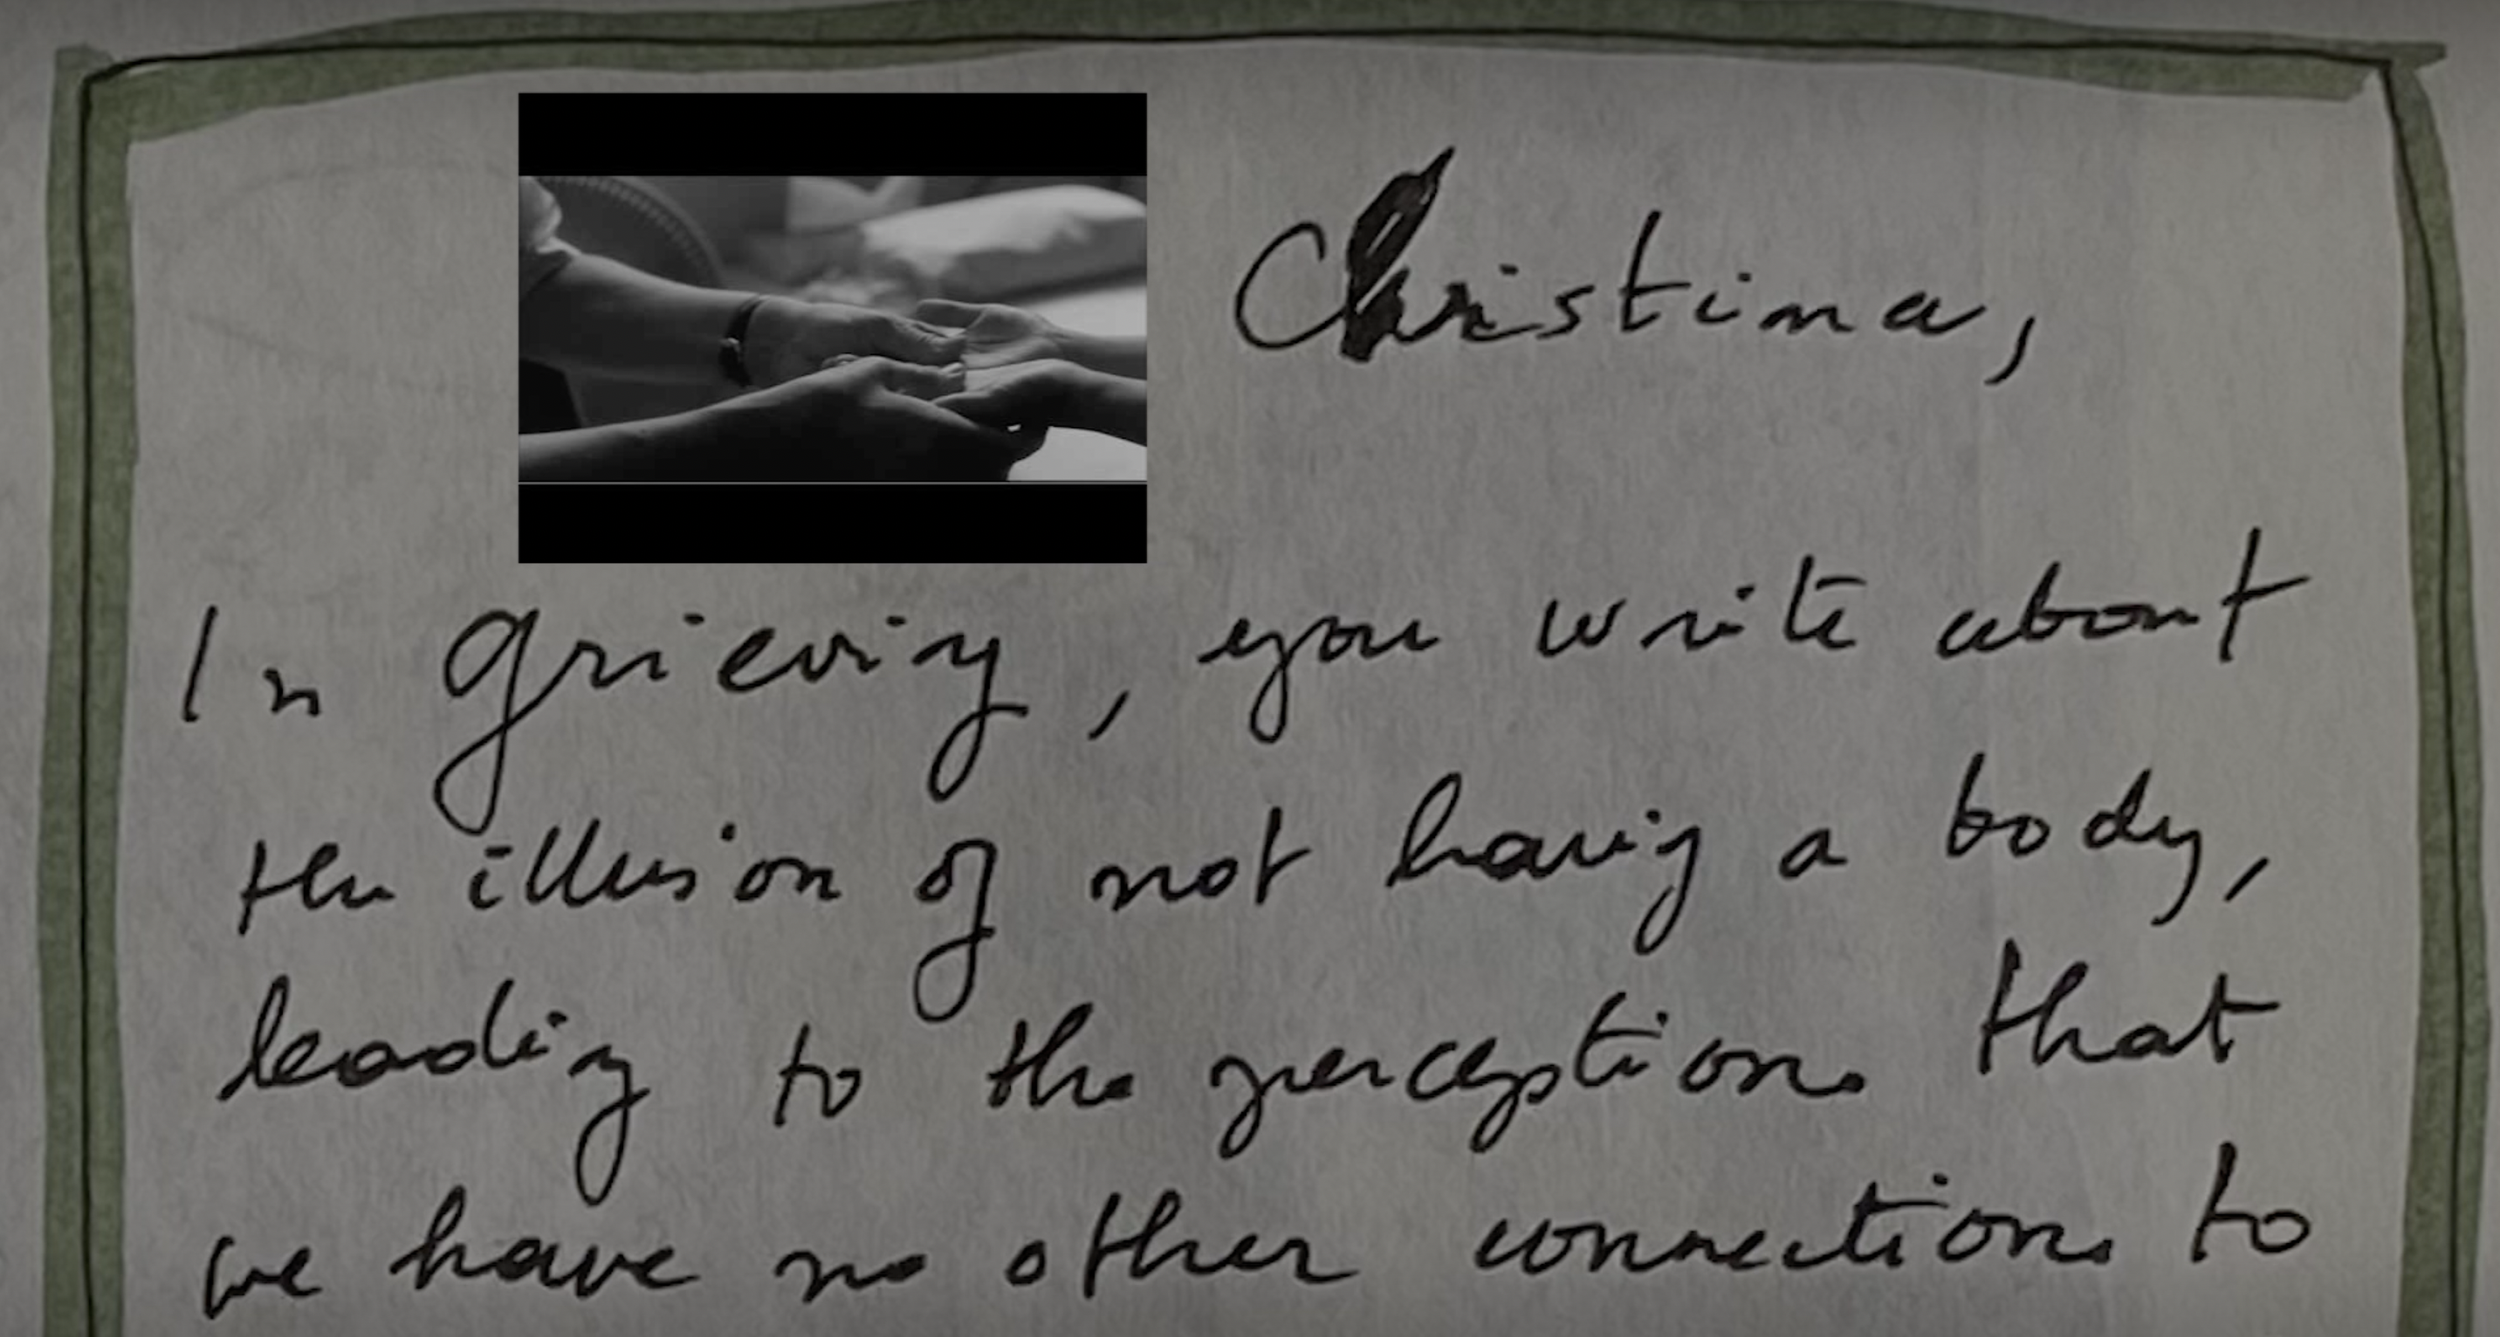 Christina,
In grieving, you write about
the illusion of not having a body,
leading to the perception that
we have no other connection to